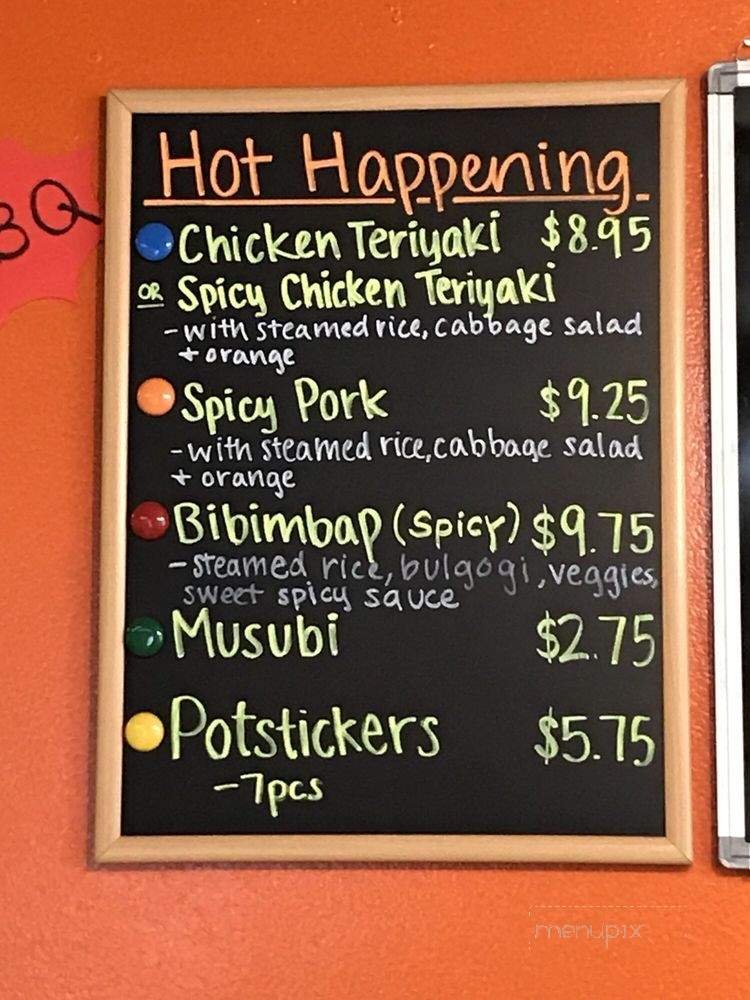 Hot Happening
Chicken Teriyaki $8.95
OR Spicy Chicken Teriyaki
-with steamed rice, cabbage salad
+ orange
Spicy Pork $9.25
-with steamed rice, cabbage salad
+ orange
Bibimbap (Spicy) $9.75
-steamed rice, bulgogi, veggies,
sweet spicy sauce
Musubi $2.75
Potstickers $5.75
-7pcs
BQ
menupix